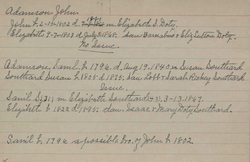 Adamson John
John b. 2-18-1802 d. 1880 m Elizabeth S Doty.
Elizabeth b. 7-7-1803 d July 2 1845. dau Barnabas & Elizabeth Doty.
No Issue.
Adamson Saml b. 1796 d. Aug 19, 1840 m Susan Southard
Southard Susan b. 1805 d. 1893. dau Robt & Sarah Southard
Issue.
Saml S. m Elizabeth Southard
Elizabeth b. 1822 d. 1851 dau Isaac & Mary Southard.
Saml b. 1796 is possible bro. of John b. 1802.